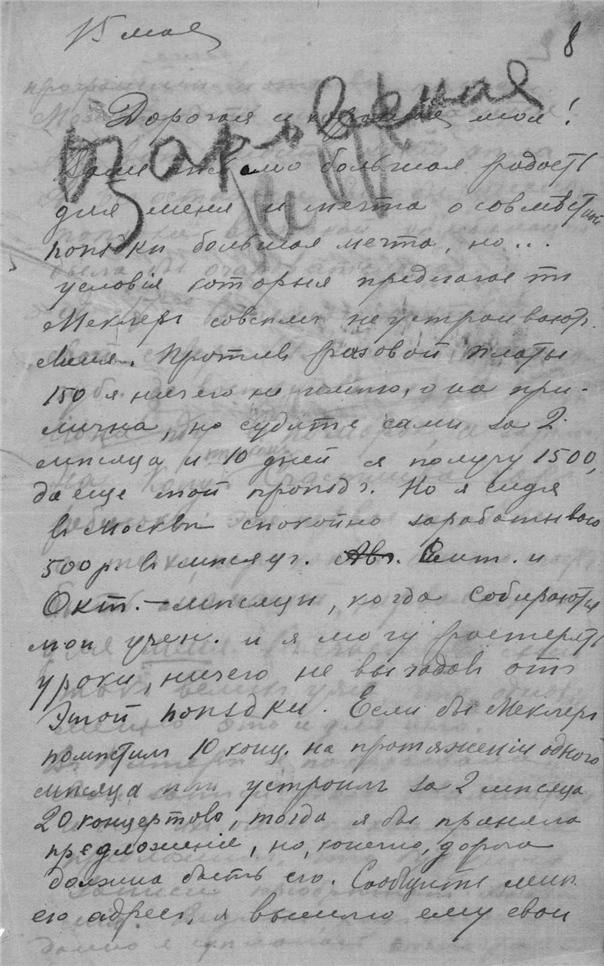 15 мая
8
Дорогая и моя!
Ваше письмо большая радость
для меня и мечта о совмѣстной
поѣздки большая мечта, но...
условія которыя предлагаетъ
Меклеръ совсѣмъ не устраиваютъ
меня. Противъ разовой платы
150 я ничего не имѣю, она при-
лична, но судите сами за 2
мѣсяца и 10 дней я получу 1500,
да еще мой проѣздъ. Но я сидя
въ Москвѣ спокойно зарабатываю
500 р. въ мѣсяцъ. Авг. Сент. и
Окт. – мѣсяцы, когда собираются
мои учен. и я могу растерять
уроки, ничего не выгадавъ отъ
этой поѣздки. Если бы Меклеръ
помѣстилъ 10 конц. на протяженіи одного
мѣсяца или устроилъ за 2 мѣсяца
20 концертовъ, тогда я бы приняла
предложеніе, но, конечно, дорога
должна быть его. Сообщите мнѣ
его адресъ, я вышлю ему свои